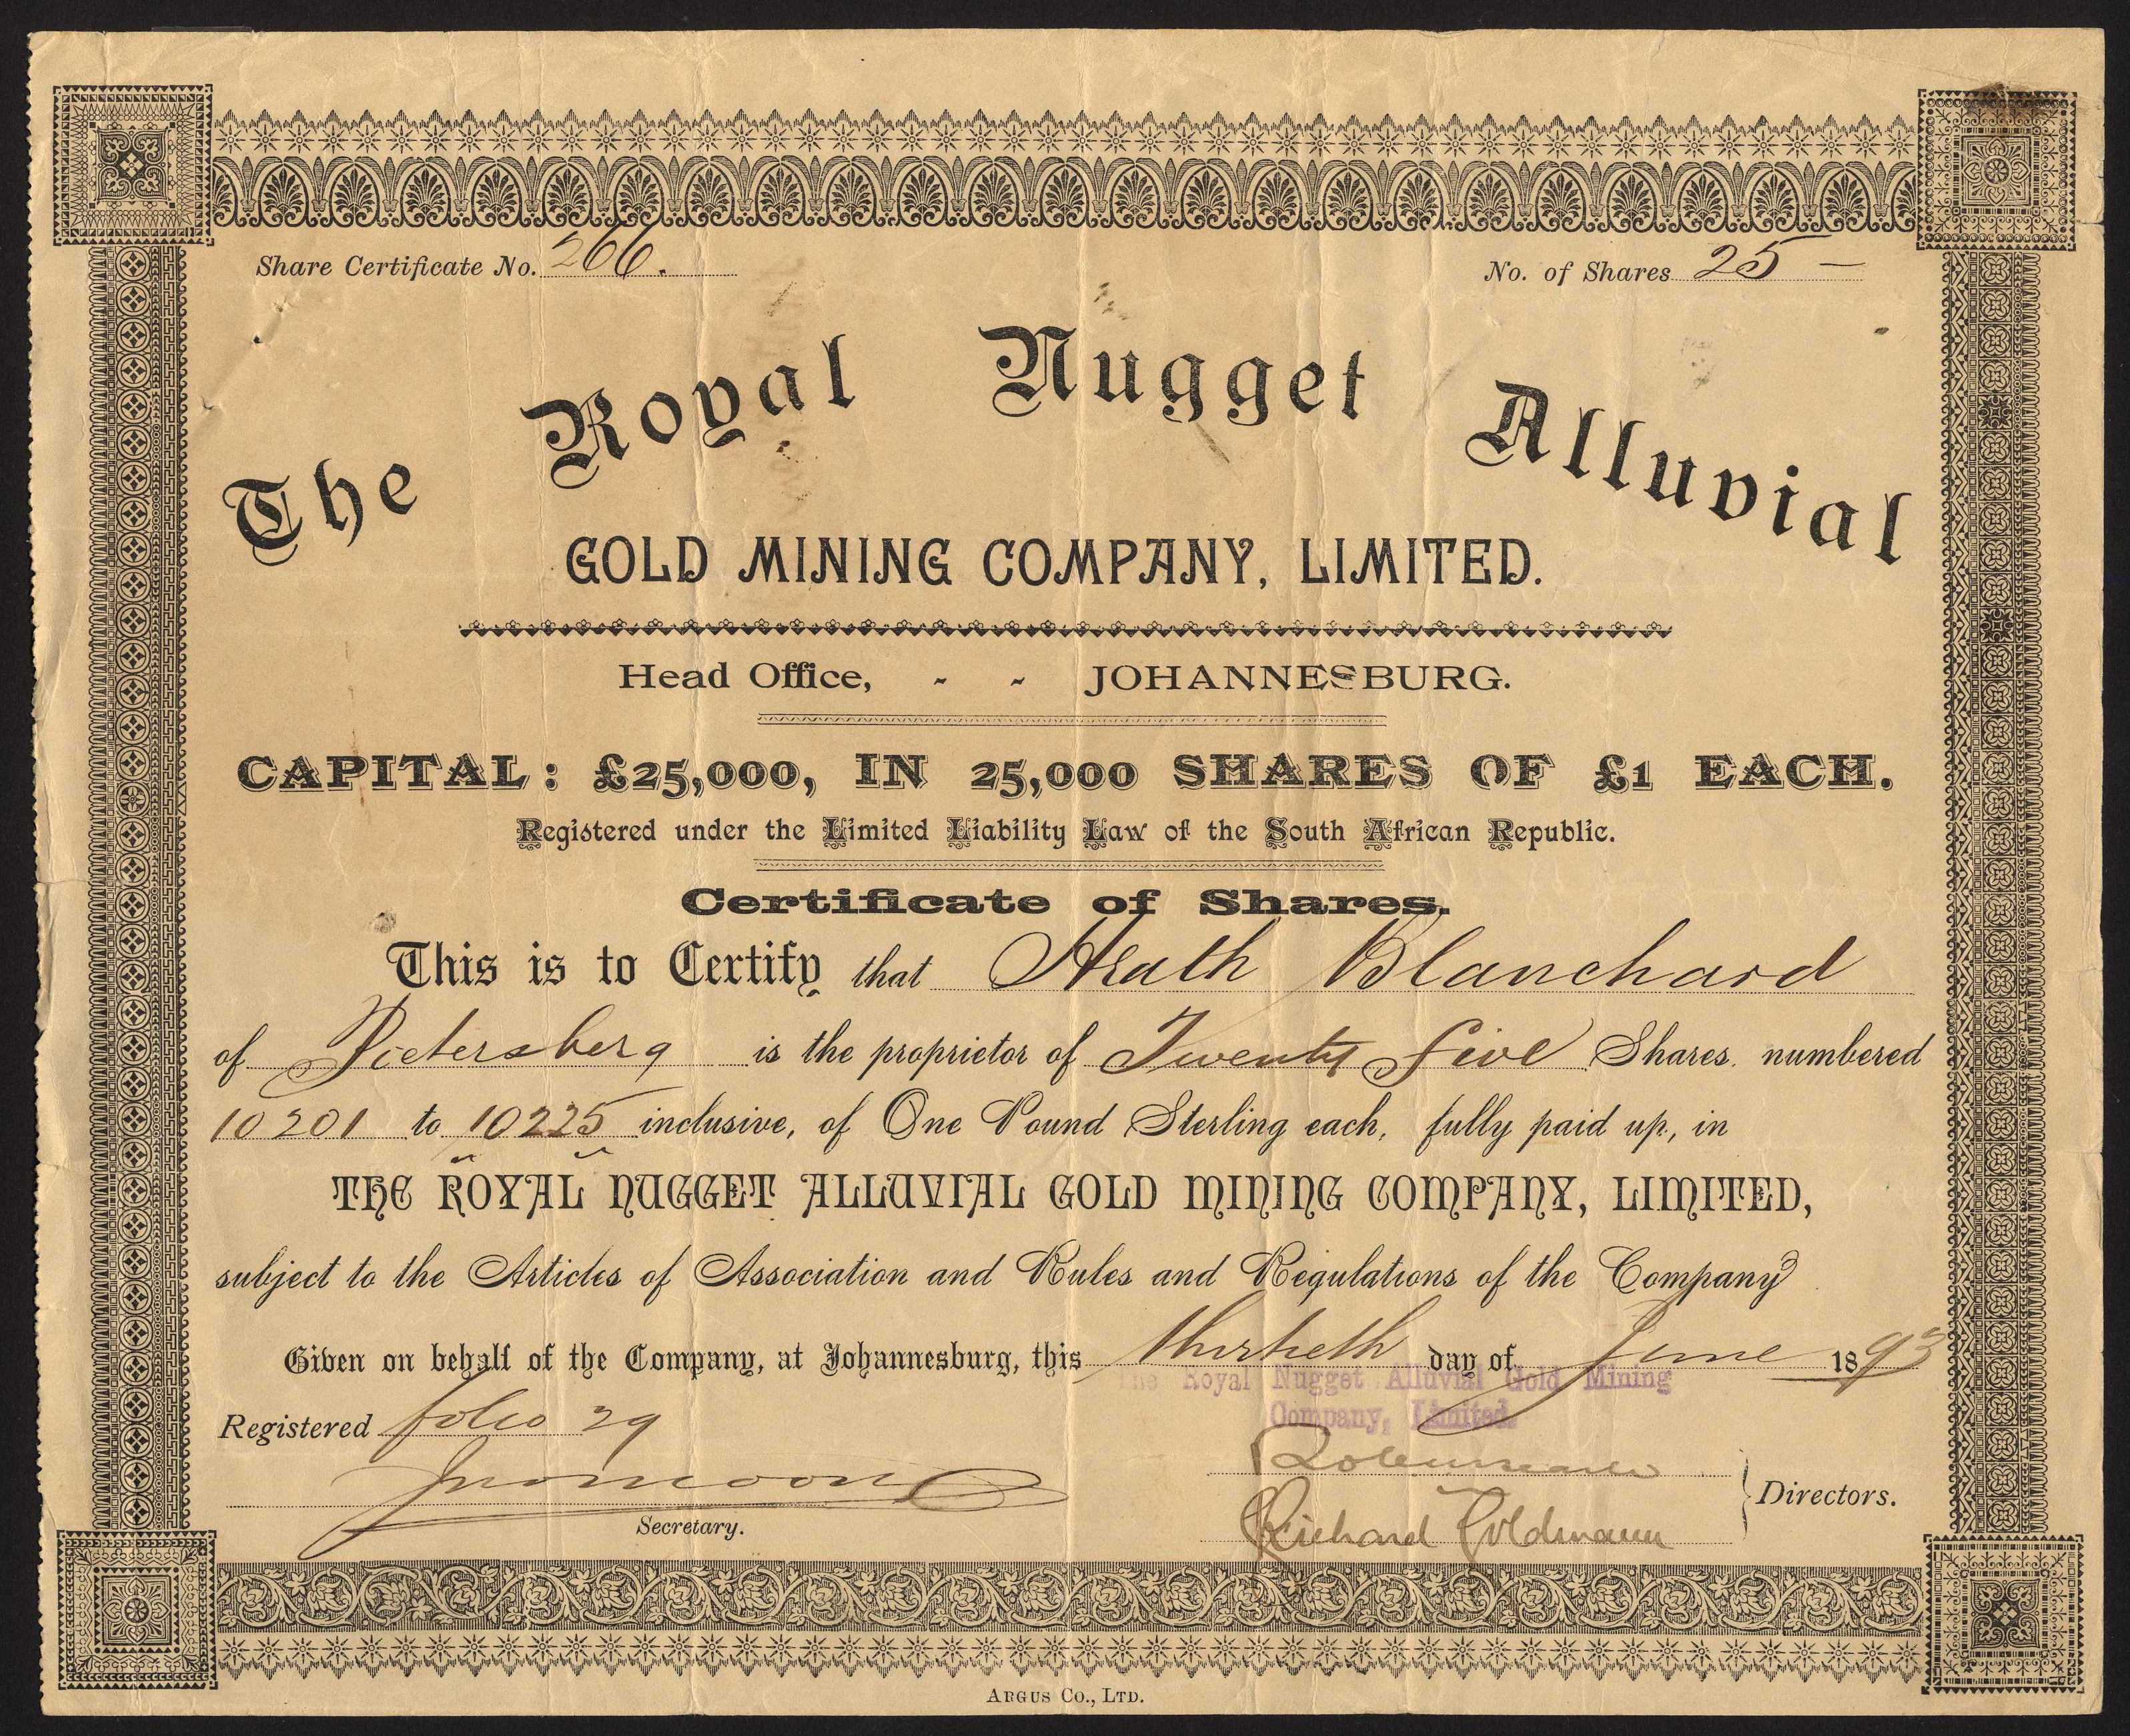 Share Certificate No. 266. No. of Shares 25 –
The Royal Nugget Alluvial
GOLD MINING COMPANY, LIMITED.
Head Office, - - JOHANNESBURG.
CAPITAL: £25,000, IN 25,000 SHARES OF £1 EACH.
Registered under the Limited Liability Law of the South African Republic.
Certificate of Shares.
This is to Certify that Heath Blanchard
of Pietersberg is the proprietor of Twenty five Shares numbered
10201 to 10225 inclusive, of One Pound Sterling each, fully paid up, in
THE ROYAL NUGGET ALLUVIAL GOLD MINING COMPANY, LIMITED,
subject to the Articles of Association and Rules and Regulations of the Company
Given on behalf of the Company, at Johannesburg, this thirtieth day of June 1893
The Royal Nugget Alluvial Gold Mining
Company, Limited.
Registered folio 29
Secretary.
Richard Goldmann
Directors.
ARGUS CO., LTD.